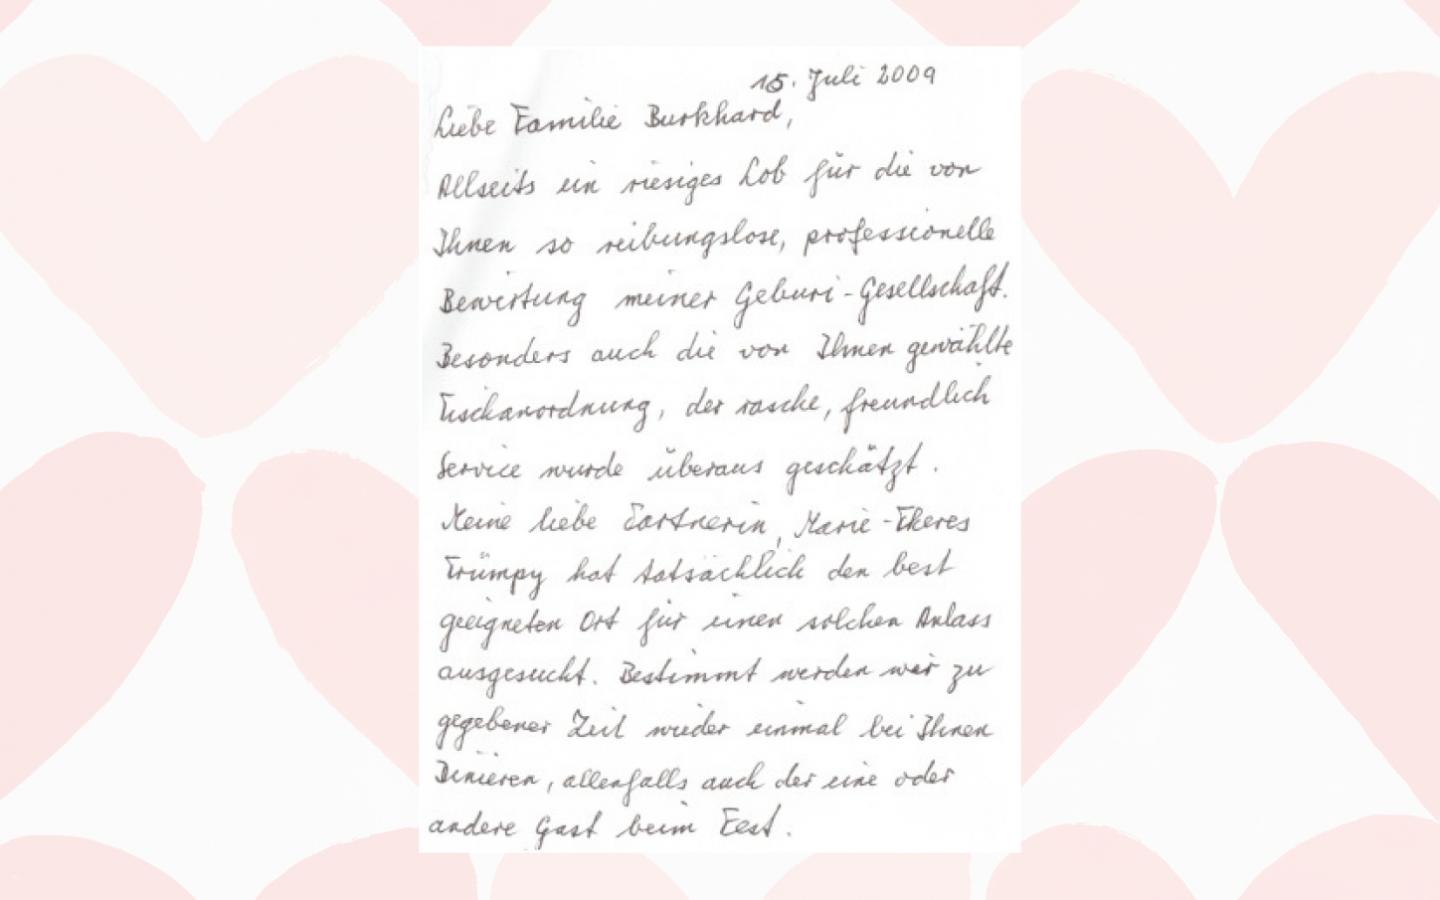 15. Juli 2009
Liebe Familie Burkhard,
Allseits ein riesiges Lob für die von
Ihnen so reibungslose, professionelle
Bewirtung meiner Geburi-Gesellschaft.
Besonders auch die von Ihnen gewählte
Tischanordnung, der rasche, freundlich
Service wurde überaus geschätzt.
Meine liebe Partnerin, Marie-Theres
Trümpy hat tatsächlich den best
geeigneten Ort für einen solchen Anlass
ausgesucht. Bestimmt werden wir zu
gegebener Zeit wieder einmal bei Ihnen
Dinieren, allenfalls auch der eine oder
andere Gast beim Fest.